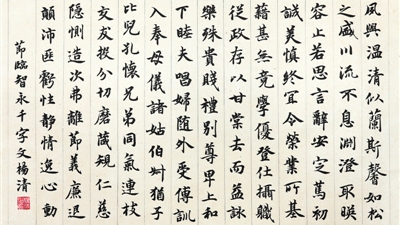 夙興溫清似蘭斯馨如松
之盛川流不息淵澄取暎
容止若思言辭安定篤初
誠美慎終宜令榮業所基
藉甚無竟學優登仕攝職
從政存以甘棠去而益詠
樂殊貴賤禮別尊卑上和
下睦夫唱婦隨外受傅訓
入奉母儀諸姑伯叔猶子
比兒孔懷兄弟同氣連枝
交友投分切磨箴規仁慈
隱惻造次弗離節義廉退
顛沛匪虧性靜情逸心動
節臨智永千字文楊清